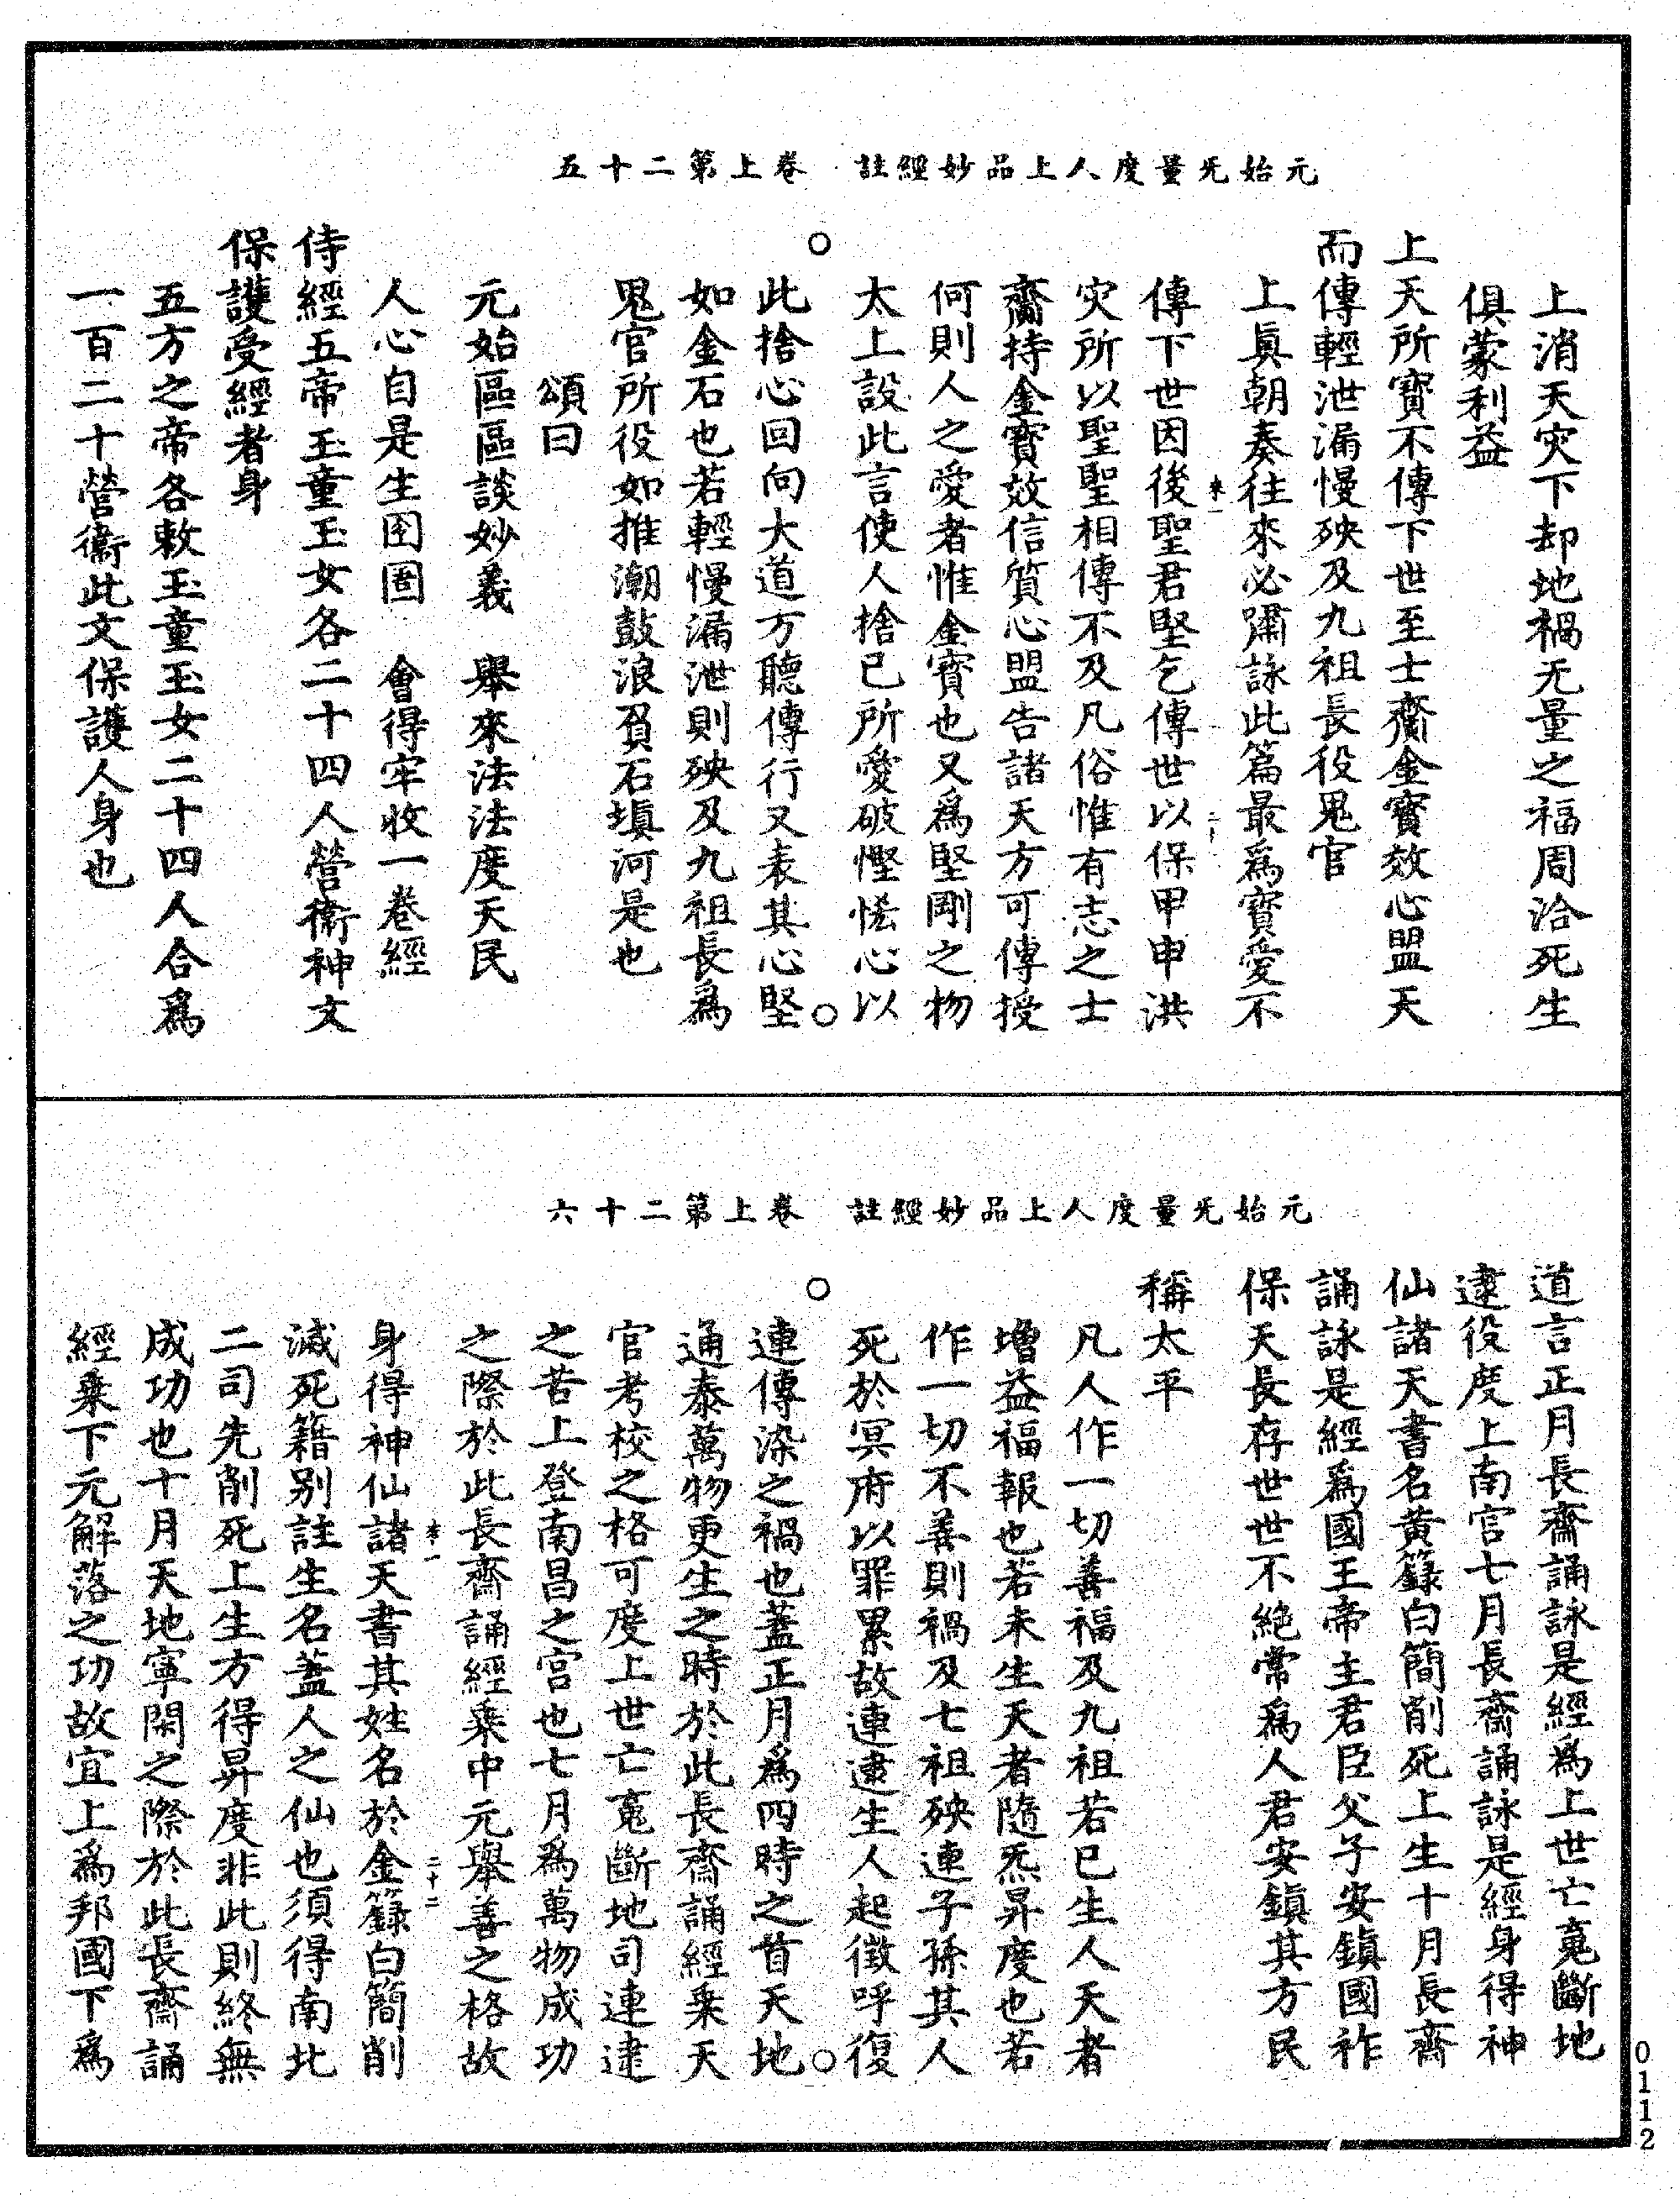 元始旡量度人上品妙經註　卷上第二十五
上消天灾下却地禍无量之福周洽死生
俱蒙利益
上天所寶不傳下世至士齎金寶效心盟天
而傳輕泄漏慢殃及九祖長役鬼官
上真朝奏往來必肅詠此篇最爲寶愛不
來一
二十一
傳下世因後聖君堅乞傳世以保甲申洪
灾所以聖聖相傳不及凡俗惟有志之士
齎持金寶效信質心盟告諸天方可傳授
何則人之愛者惟金寶也又爲堅剛之物
太上設此言使人捨已所愛破慳悋心以
此捨心回向大道方聽傳行又表其心堅
如金石也若輕慢漏泄則殃及九祖長爲
鬼官所役如推潮鼓浪負石塡河是也
頌曰
元始區區談妙義　舉來法法度天民
人心自是生囨圈　會得牢收一卷經
侍經五帝玉童玉女各二十四人營衞神文
保護受經者身
五方之帝各敕玉童玉女二十四人合爲
一百二十營衞此文保護人身也
元始旡量度人上品妙經註　卷上第二十六
道言正月長齋誦詠是經爲上世亡䰟斷地
逮役度上南宫七月長齋誦詠是經身得神
仙諸天書名黄籙白簡削死上生十月長齋
誦詠是經爲國王帝主君臣父子安鎮國祚
保天長存世世不絶常爲人君安鎮其方民
稱太平
凡人作一切善福及九祖若已生人天者
增益福報也若未生天者隨炁昇度也若
作一切不善則禍及七祖殃連子孫其人
死於冥府以罪累故連逮生人起徵呼復
連傳染之禍也蓋正月爲四時之首天地
通泰萬物更生之時於此長齋誦經乗天
官考校之格可度上世亡䰟斷地司連逮
之苦上登南昌之宫也七月爲萬物成功
之際於此長齋誦經乗中元舉善之格故
來一
二十二
身得神仙諸天書其姓名於金籙白簡削
滅死籍别註生名蓋人之仙也須得南北
二司先削死上生方得昇度非此則終無
成功也十月天地寧閑之際於此長齋誦
經乗下元解落之功故宜上爲邦國下爲
0112